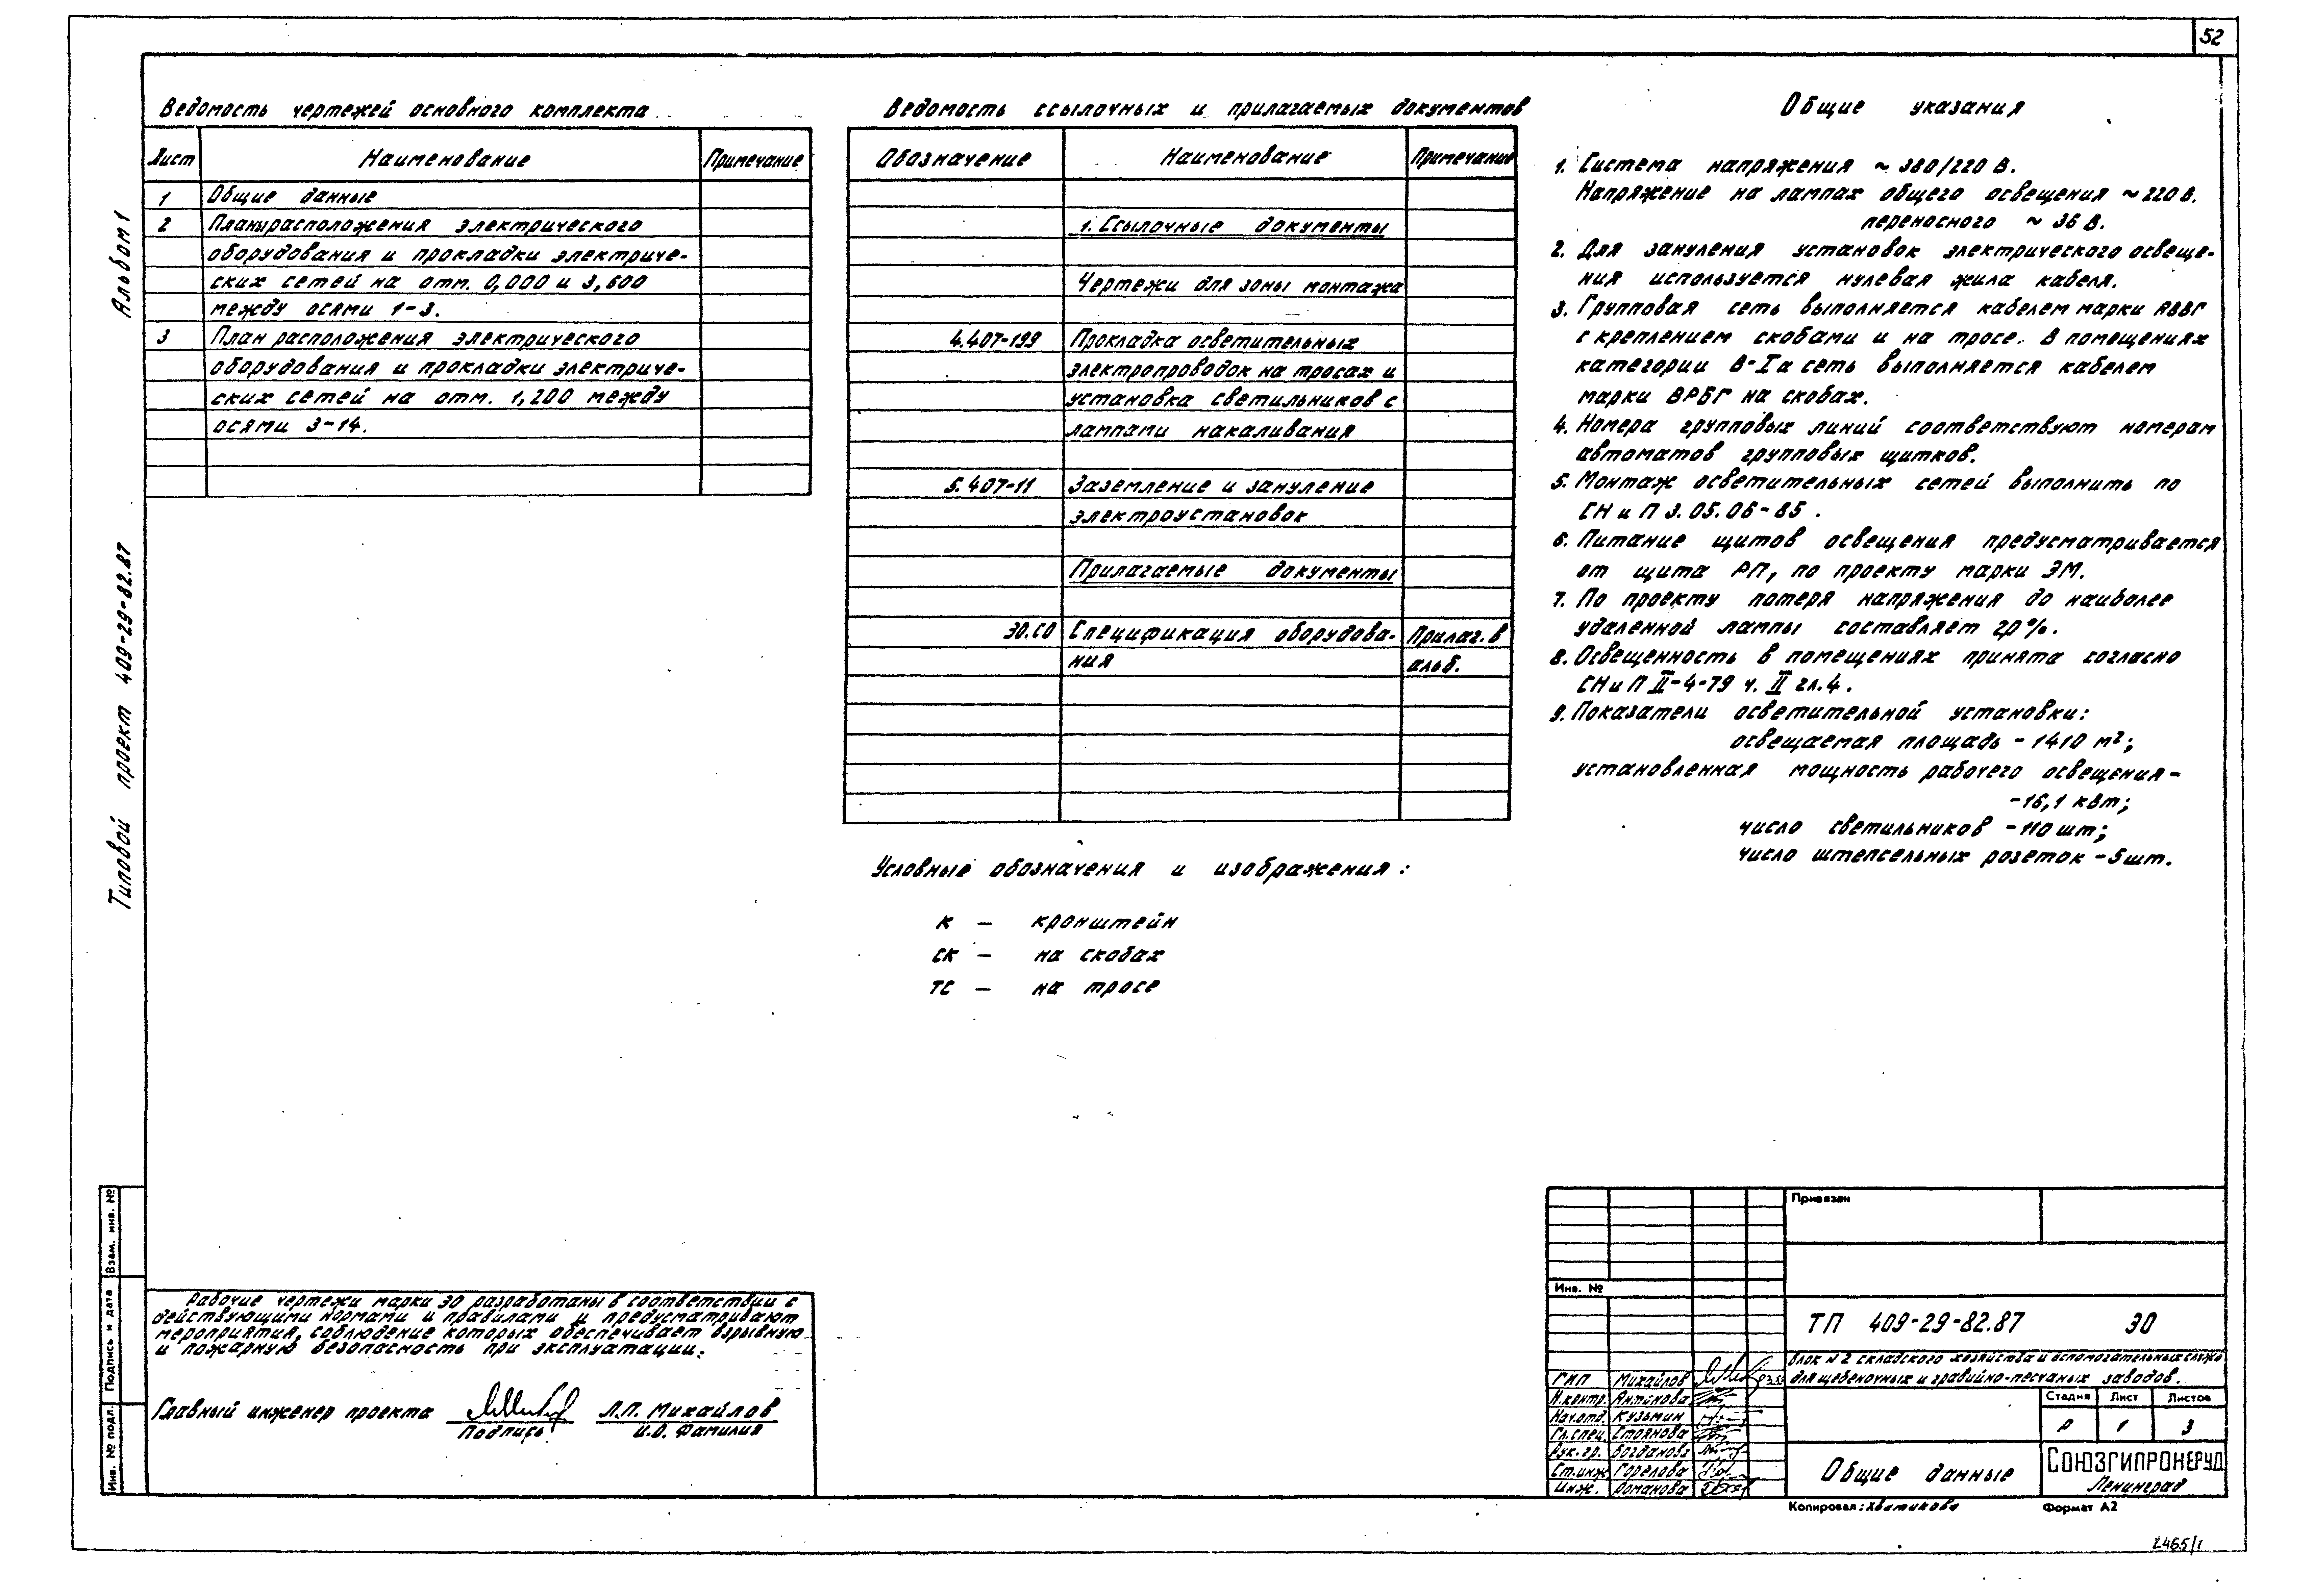 52
Альбом 1
Типовой проект 409-29-82.87
Ведомость чертежей основного комплекта
Лист Наименование Примечание
1 Общие данные
2 Планы расположения электрического
оборудования и прокладки электриче-
ских сетей на отм. 0,000 и 3,600
между осями 1-3.
3 План расположения электрического
оборудования и прокладки электриче-
ских сетей на отм. 1,200 между
осями 3-14.
Ведомость ссылочных и прилагаемых документов
Обозначение Наименование Примечание
1. Ссылочные документы
Чертежи для зоны монтажа
4.407-199 Прокладка осветительных
электропроводок на тросах и
установка светильников с
лампами накаливания
5.407-11 Заземление и зануление
электроустановок
Прилагаемые документы
ЭО.СО Спецификация оборудова- Прилаг. в
ния альб.
Условные обозначения и изображения:
К — кронштейн
СК — на скобах
ТС — на тросе
Общие указания
1. Система напряжения ~ 380/220 В.
Напряжение на лампах общего освещения ~ 220 В.
переносного ~ 36 В.
2. Для зануления установок электрического освеще-
ния используется нулевая жила кабеля.
3. Групповая сеть выполняется кабелем марки АВВГ
с креплением скобами и на тросе. В помещениях
категории В-Iа сеть выполняется кабелем
марки ВРБГ на скобах.
4. Номера групповых линий соответствуют номерам
автоматов групповых щитков.
5. Монтаж осветительных сетей выполнить по
СНиП 3.05.06-85.
6. Питание щитов освещения предусматривается
от щита РП, по проекту марки ЭМ.
7. По проекту потеря напряжения до наиболее
удаленной лампы составляет 2,0%.
8. Освещенность в помещениях принята согласно
СНиП II-4-79 ч. II гл. 4.
9. Показатели осветительной установки:
освещаемая площадь - 1410 м²;
установленная мощность рабочего освещения -
-16,1 кВт;
число светильников - 110 шт;
число штепсельных розеток - 5 шт.
Взам. инв. №
Подпись и дата
Инв. № подл.
Рабочие чертежи марки ЭО разработаны в соответствии с
действующими нормами и правилами и предусматривают
мероприятия, соблюдение которых обеспечивает взрывную
и пожарную безопасность при эксплуатации.
Главный инженер проекта Л.П. Михайлов
Подпись И.О. Фамилия
Привязан
Инв. №
ТП 409-29-82.87 ЭО
Блок №2 складского хозяйства и вспомогательных служб
для щебеночных и гравийно-песчаных заводов.
ГИП Михайлов
Н.контр. Антинова
Нач.отд. Кузьмин
Гл.спец. Стоянова
Рук.гр. Богданова
Ст.инж Горелова
Инж. Романова
Стадия Лист Листов
Р 1 3
Общие данные
СОЮЗГИПРОНЕРУД
Ленинград
Копировал: Хватикова Формат А2
2465/1